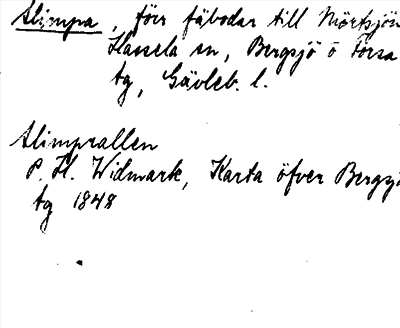 Slimpa, förr fäbodar till Mörtsjön
Hassela sn, Bergsjö o Forsa
tg, Gävleb. l.
Slimprallen
P. H. Widmark, Karta öfver Bergsj
tg 1848